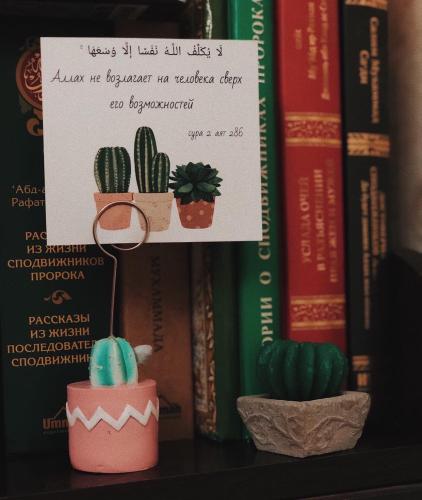 لَا يُكَلِّفُ اللَّهُ نَفْسًا إِلَّا وُسْعَهَا
Аллах не возлагает на человека сверх
его возможностей
сура 2 аят 286
'Абд-а
Рафат
РАС
ИЗ ЖИЗНИ
СПОДВИЖНИКОВ
ПРОРОКА
РАССКАЗЫ
ИЗ ЖИЗНИ
ПОСЛЕДОВАТЕЛ
СПОДВИЖНИК
Umm
МУХАММАДА
РИИ О СПОДВИЖНИКАХ ПРОРОКА
УСЛАДА ОЧЕЙ
В РАЗЪЯСНЕНИИ